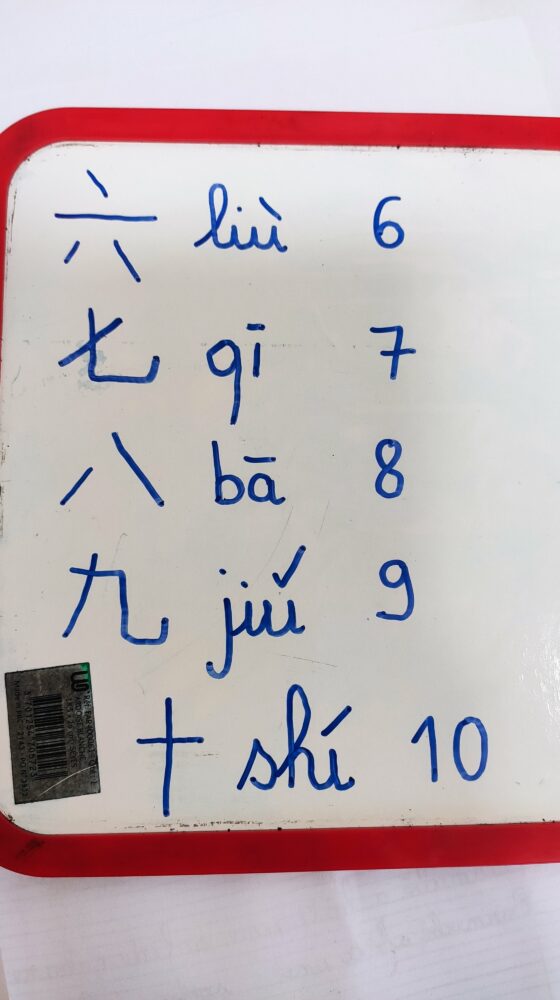 六 liù 6
七 qī 7
八 bā 8
九 jiǔ 9
十 shí 10